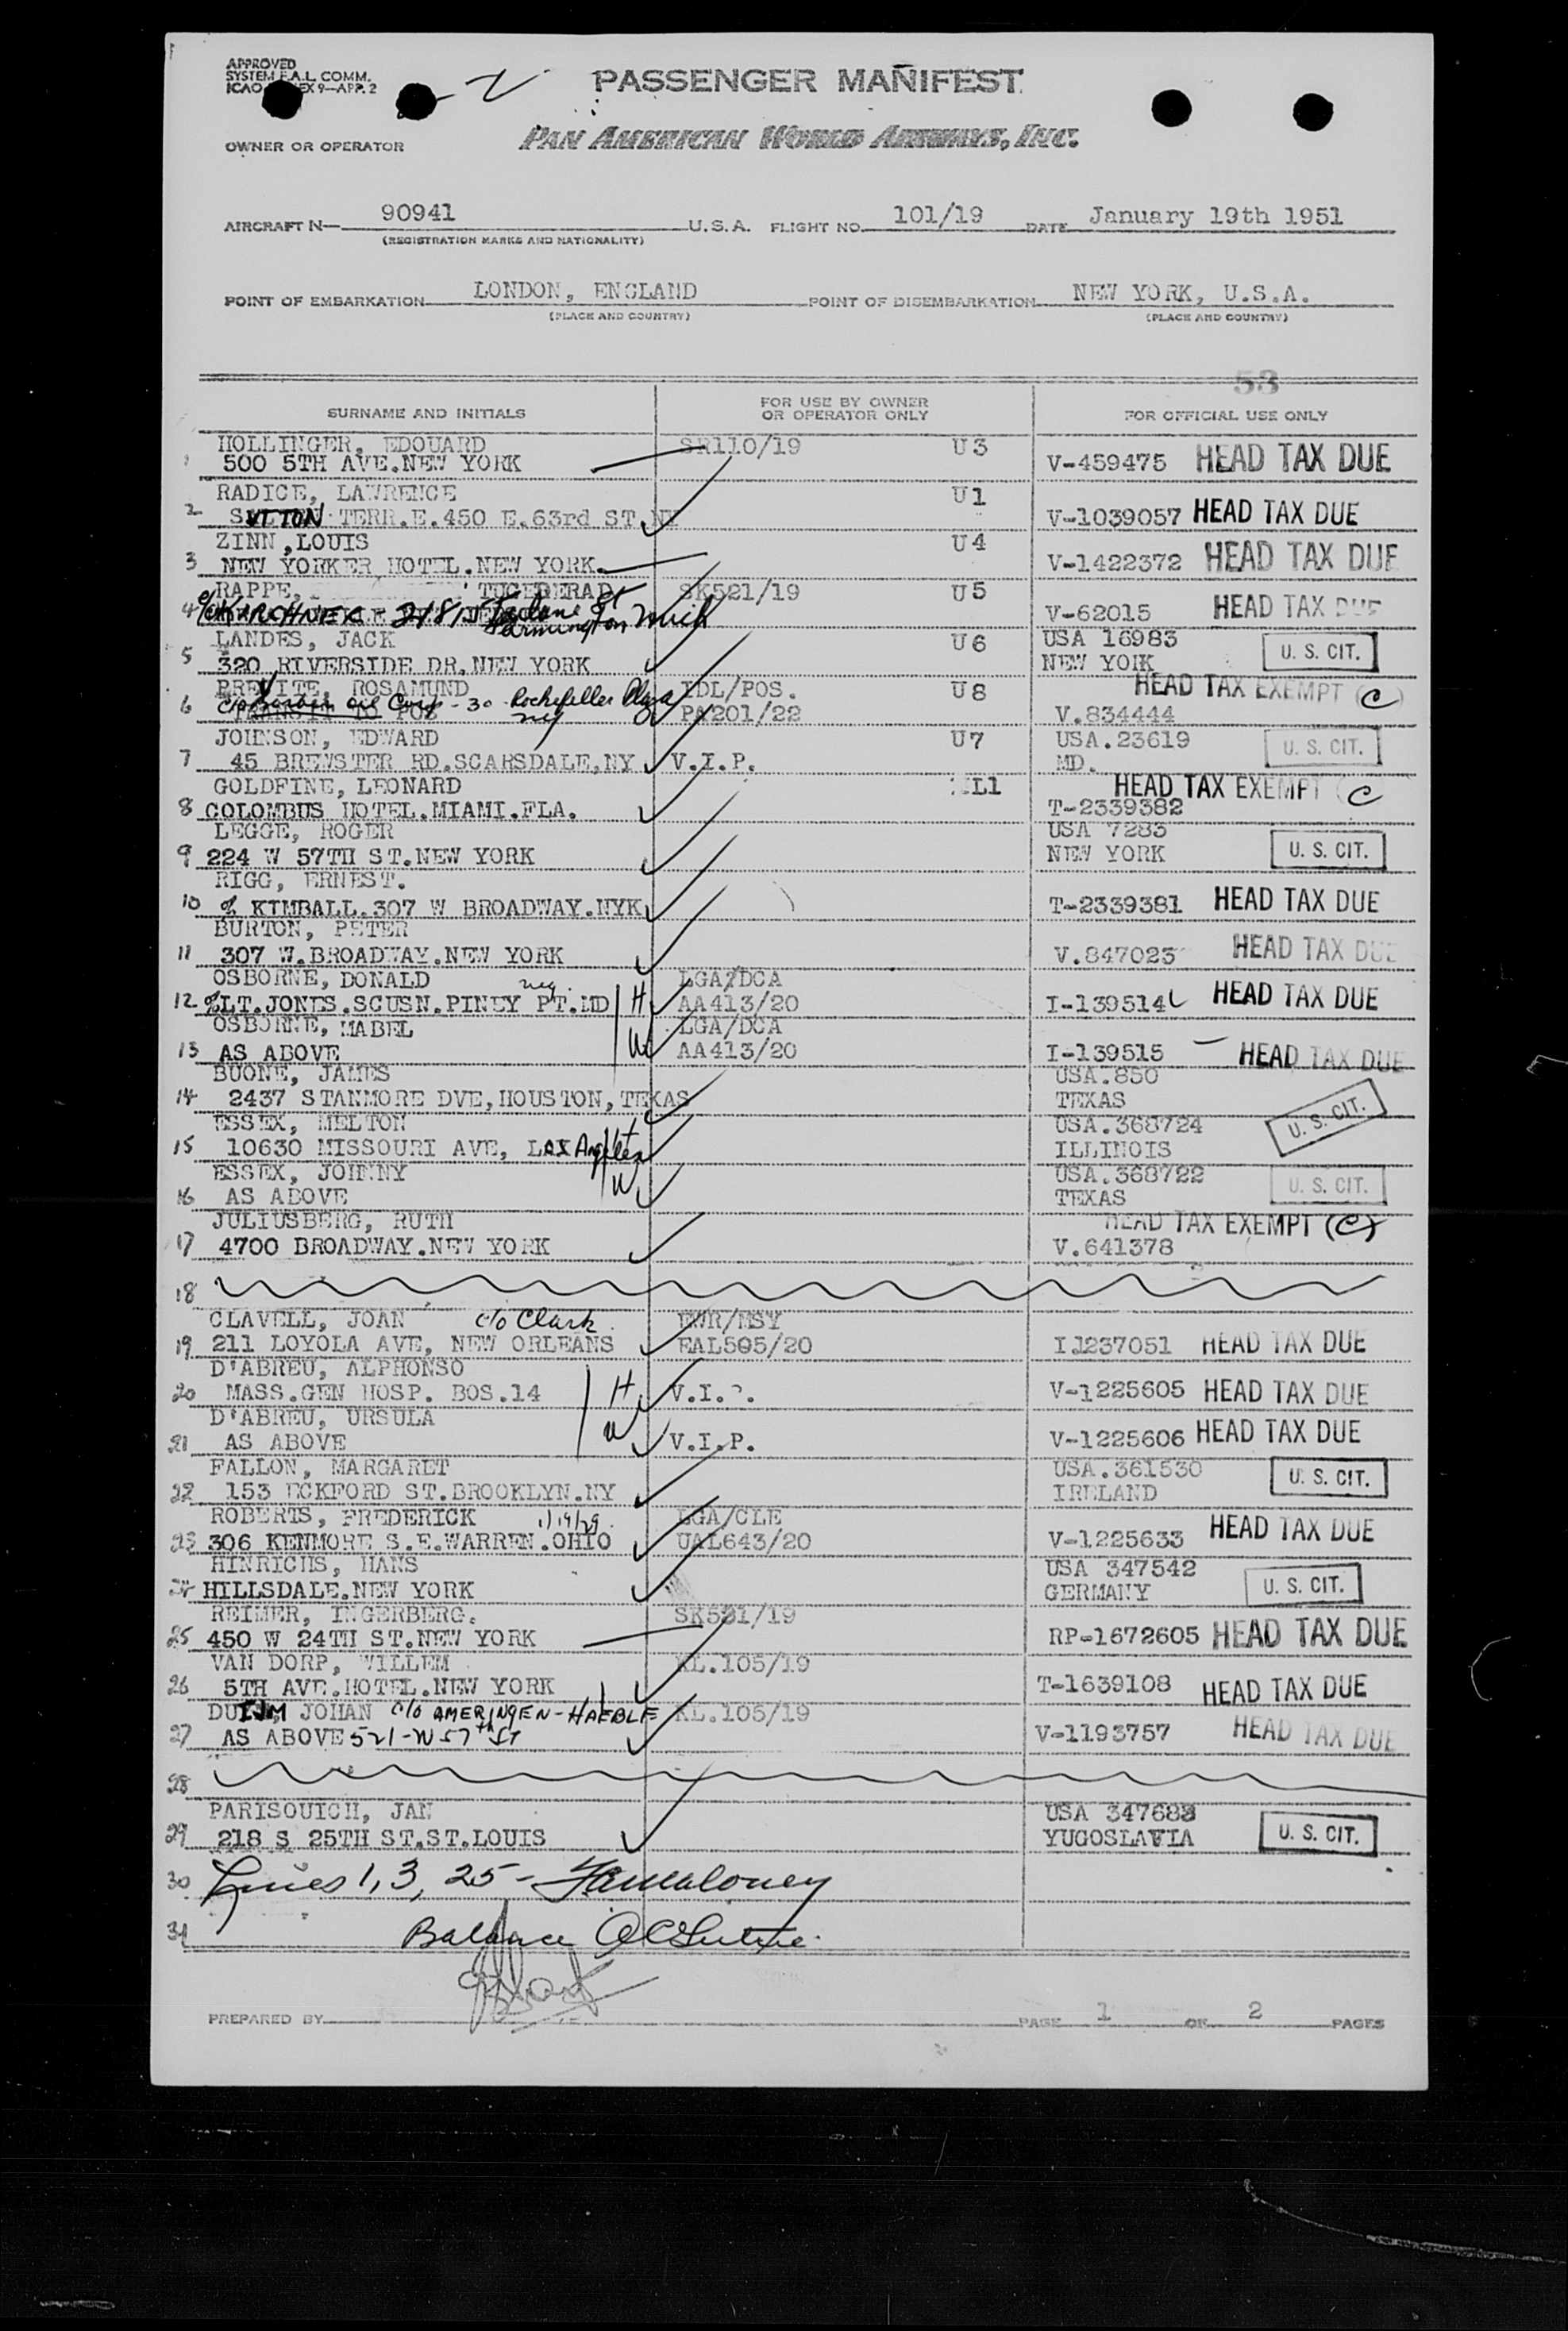 APPROVED
SYSTEM F.A.L. COMM.
ICAO EX 9—APP. 2
PASSENGER MANIFEST
OWNER OR OPERATOR
PAN AMERICAN WORLD AIRWAYS, INC.
AIRCRAFT N— 90941 U.S.A. FLIGHT NO. 101/19 DATE January 19th 1951
(REGISTRATION MARKS AND NATIONALITY)
POINT OF EMBARKATION LONDON, ENGLAND POINT OF DISEMBARKATION NEW YORK, U.S.A.
(PLACE AND COUNTRY) (PLACE AND COUNTRY)
53
SURNAME AND INITIALS FOR USE BY OWNER OR OPERATOR ONLY FOR OFFICIAL USE ONLY
HOLLINGER, EDOUARD SR110/19 U3
1 500 5TH AVE.NEW YORK V-459475 HEAD TAX DUE
RADICE, LAWRENCE U1
2 SUTTON TERR.E.450 E.63rd ST NY V-1039057 HEAD TAX DUE
ZINN ,LOUIS U4
3 NEW YORKER HOTEL.NEW YORK. V-1422372 HEAD TAX DUE
RAPPE, SK521/19 U5
4 c/o KIRCHNER - 21815 St Farmington Mich V-62015 HEAD TAX DUE
LANDES, JACK U6 USA 16983
5 320 RIVERSIDE DR.NEW YORK NEW YOIK U. S. CIT.
PREVITE, ROSAMUND IDL/POS. U8 HEAD TAX EXEMPT (C)
6 c/o Barber Oil Corp - 30 Rockefeller Plaza NY PA201/22 V.834444
JOHNSON, EDWARD U7 USA.23619
7 45 BREWSTER RD.SCARSDALE,NY V.I.P. MD. U. S. CIT.
GOLDFINE, LEONARD L1 HEAD TAX EXEMPT (C
8 COLOMBUS HOTEL.MIAMI.FLA. T-2339382
LEGGE, ROGER USA 7283
9 224 W 57TH ST.NEW YORK NEW YORK U. S. CIT.
RIGG, ERNEST.
10 % KIMBALL.307 W BROADWAY.NYK T-2339381 HEAD TAX DUE
BURTON, PETER
11 307 W.BROADWAY.NEW YORK V.847023 HEAD TAX DUE
OSBORNE, DONALD neg. LGA/DCA
12 %LT.JONES.SCUSN.PINEY PT.MD H AA413/20 I-139514 HEAD TAX DUE
OSBORNE, MABEL LGA/DCA
13 AS ABOVE W AA413/20 I-139515 HEAD TAX DUE
BUONE, JAMES USA.850
14 2437 STANMORE DVE,HOUSTON,TEXAS TEXAS U. S. CIT.
ESSEX, MELTON H USA.368724
15 10630 MISSOURI AVE, LOS Angeles ILLINOIS
ESSEX, JOHNNY W USA.368722
16 AS ABOVE TEXAS U. S. CIT.
JULIUSBERG, RUTH HEAD TAX EXEMPT (C)
17 4700 BROADWAY.NEW YORK V.641378
18
CLAVELL, JOAN c/o Clark. EWR/MSY
19 211 LOYOLA AVE, NEW ORLEANS EAL505/20 I1237051 HEAD TAX DUE
D'ABREU, ALPHONSO
20 MASS.GEN HOSP. BOS.14 H V.I.P. V-1225605 HEAD TAX DUE
D'ABREU, URSULA
21 AS ABOVE W V.I.P. V-1225606 HEAD TAX DUE
FALLON, MARGARET USA.361530
22 153 ECKFORD ST.BROOKLYN.NY IRELAND U. S. CIT.
ROBERTS, FREDERICK 1/19/29. LGA/CLE
23 306 KENMORE S.E.WARREN.OHIO UAL643/20 V-1225633 HEAD TAX DUE
HINRICHS, HANS USA 347542
24 HILLSDALE.NEW YORK GERMANY U. S. CIT.
REIMER, INGERBERG. SK521/19
25 450 W 24TH ST.NEW YORK RP-1672605 HEAD TAX DUE
VAN DORP, WILLEM KL.105/19
26 5TH AVE.HOTEL.NEW YORK T-1639108 HEAD TAX DUE
DUIJM, JOHAN c/o AMERINGEN-HAEBLE KL.105/19
27 AS ABOVE 521-W 57th ST V-1193757 HEAD TAX DUE
28
PARISOUICH, JAN USA 347683
29 218 S 25TH ST.ST.LOUIS YUGOSLAVIA U. S. CIT.
30 Lines 1, 3, 25 -
31 Balance
PREPARED BY PAGE 1 OF 2 PAGES